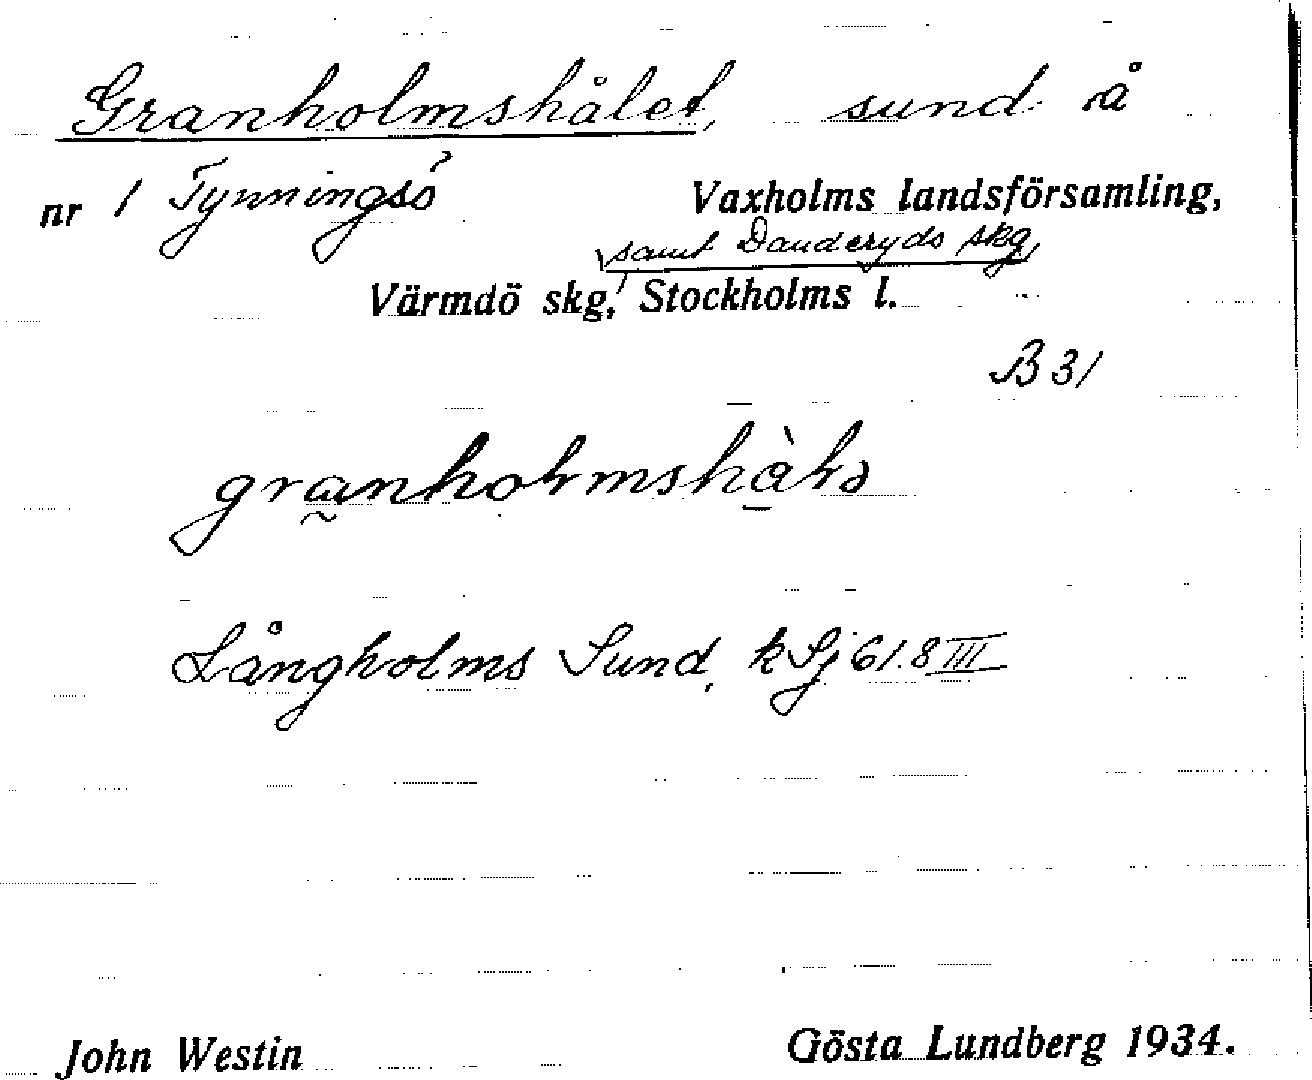 Granholmshålet, sund å
nr 1 Tynningsö Vaxholms landsförsamling,
samt Danderyds skg,
Värmdö skg, Stockholms l.
B 31
Långholms Sund, kSj 61.8 III
John Westin Gösta Lundberg 1934.